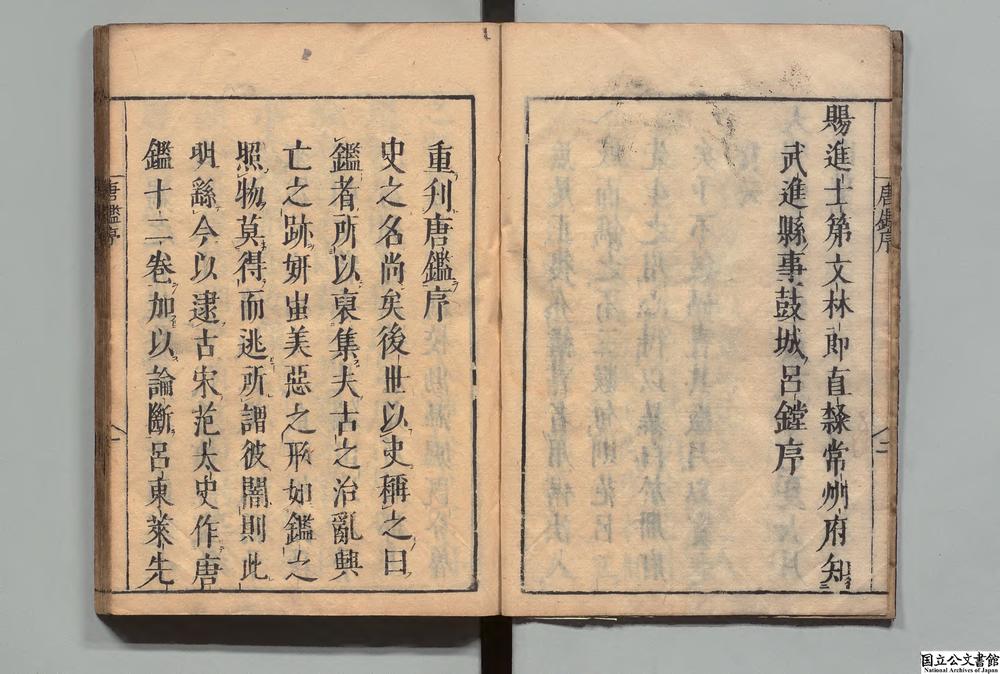 賜進士第文林郎直隸常州府知
武進縣事鼓城呂鏜序
唐鑑序
二
重刋唐鑑序
史之名尚矣後世以史稱之曰
鑑者所以裒集夫古之治亂興
亡之跡妍蚩美惡之形如鑑之
照物莫得而逃所謂彼闇則此
明繇今以逮古宋范太史作唐
鑑十二卷加以論斷呂東萊先
唐鑑序
一
国立公文書館
National Archives of Japan